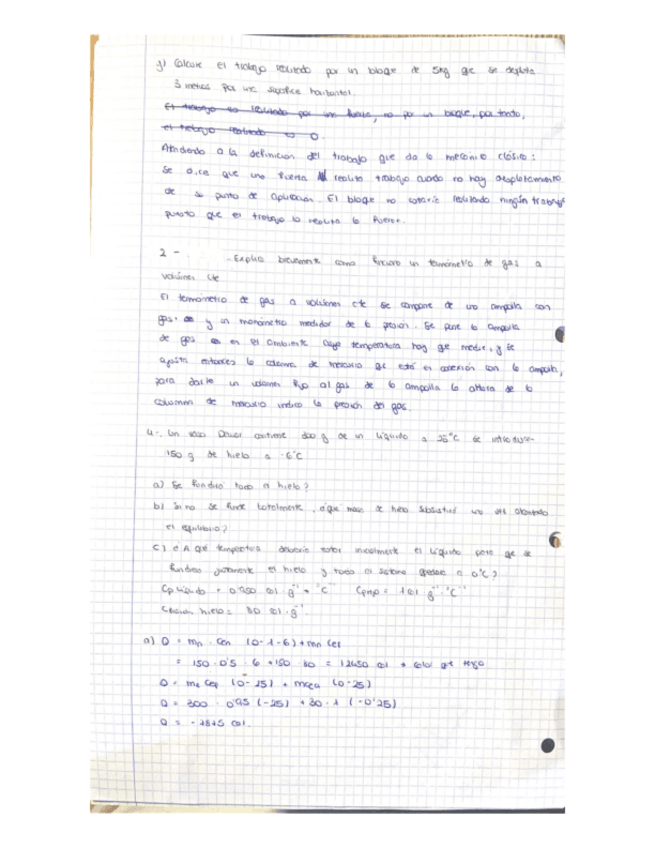 g) Calcule el trabajo realizado por un bloque de 5kg que se desplaza
3 metros por una superficie horizontal.
El trabajo es realizado por una fuerza, no por un bloque, por tanto,
el trabajo realizado es 0.
Atendiendo a la definicion del trabajo que da la mecanica clásica:
se dice que una fuerza realiza trabajo cuando no hay desplazamiento
de su punto de aplicacion. El bloque no estaria realizando ningún trabajo
puesto que el trabajo lo realiza la fuerza.
2 - . Explica brevemente como funciona un termómetro de gas a
volúmen cte
El termometro de gas a volumen cte se compone de una ampolla con
gas y un manómetro medidor de la presion. Se pone la ampolla
de gas en el ambiente cuya temperatura hay que medir, y se
ajusta entonces la columna de mercurio que está en conexión con la ampolla,
para darle un volumen fijo al gas de la ampolla la altura de la
columna de mercurio indica la presion del gas.
4-. Un vaso Dewar contiene 300 g de un líquido a 25°C se introducen
150 g de hielo a -6°C
a) Se fundirá todo el hielo?
b) Si no se funde totalmente, ¿que masa de hielo subsistirá una vez alcanzado
el equilibrio?
c) ¿A qué temperatura deberia estar inicialmente el líquido para que se
fundiera justamente el hielo y todo el sistema quedara a 0°C?
Cp líquido = 0'350 cal · g⁻¹ · °C⁻¹ 1 cal g⁻¹ · °C⁻¹
hielo = 80 cal · g⁻¹.
a) Q =
= 150 · 0'5 · 6 + 150 · 80 = 12450 cal
Q =
Q = 300 · (-25) + 30 · 1 (-0'25)
Q = - 2845 cal.